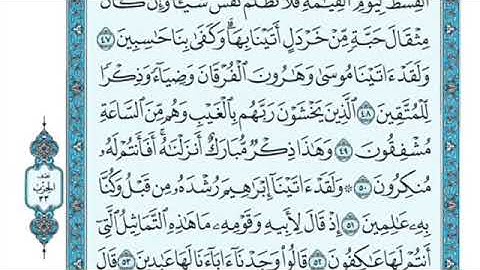 القسط ليوم القيمة فلا تظلم نفس شيئا وإن كان
مِثْقَالَ حَبَّةٍ مِّنْ خَرْدَلٍ أَتَيْنَا بِهَا وَكَفَىٰ بِنَا حَٰسِبِينَ ٤٧
وَلَقَدْ ءَاتَيْنَا مُوسَىٰ وَهَٰرُونَ ٱلْفُرْقَانَ وَضِيَآءً وَذِكْرًا
لِّلْمُتَّقِينَ ٤٨ ٱلَّذِينَ يَخْشَوْنَ رَبَّهُم بِٱلْغَيْبِ وَهُم مِّنَ ٱلسَّاعَةِ
مُشْفِقُونَ ٤٩ وَهَٰذَا ذِكْرٌ مُّبَارَكٌ أَنزَلْنَٰهُ أَفَأَنتُمْ لَهُۥ
مُنكِرُونَ ٥٠ ۞ وَلَقَدْ ءَاتَيْنَآ إِبْرَٰهِيمَ رُشْدَهُۥ مِن قَبْلُ وَكُنَّا
بِهِۦ عَٰلِمِينَ ٥١ إِذْ قَالَ لِأَبِيهِ وَقَوْمِهِۦ مَا هَٰذِهِ ٱلتَّمَاثِيلُ ٱلَّتِىٓ
أَنتُمْ لَهَا عَٰكِفُونَ ٥٢ قَالُوا۟ وَجَدْنَآ ءَابَآءَنَا لَهَا عَٰبِدِينَ ٥٣ قَالَ
نصف
الحزب
٣٣